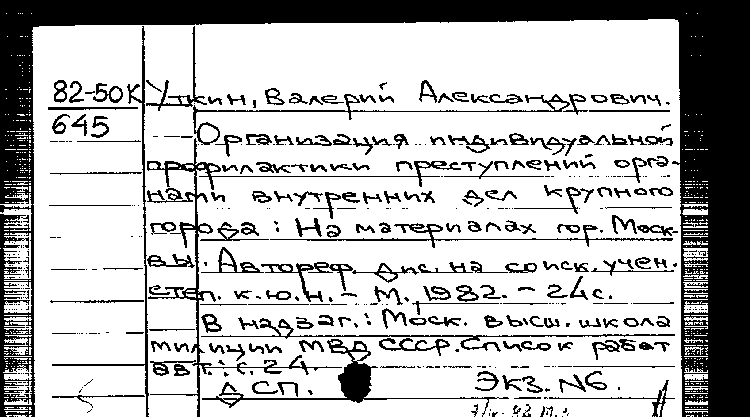 82-50К Уткин, Валерий Александрович.
645
Организация индивидуальной
профилактики преступлений орга-
нами внутренних дел крупного
города: На материалах гор. Моск-
вы. Автореф. дис. на соиск. учен.
степ. к.ю.н. - М., 1982. - 24с.
В надзаг.: Моск. высш. школа
милиции МВД СССР. Список работ
авт.: с.24.
ДСП. Экз. N6.